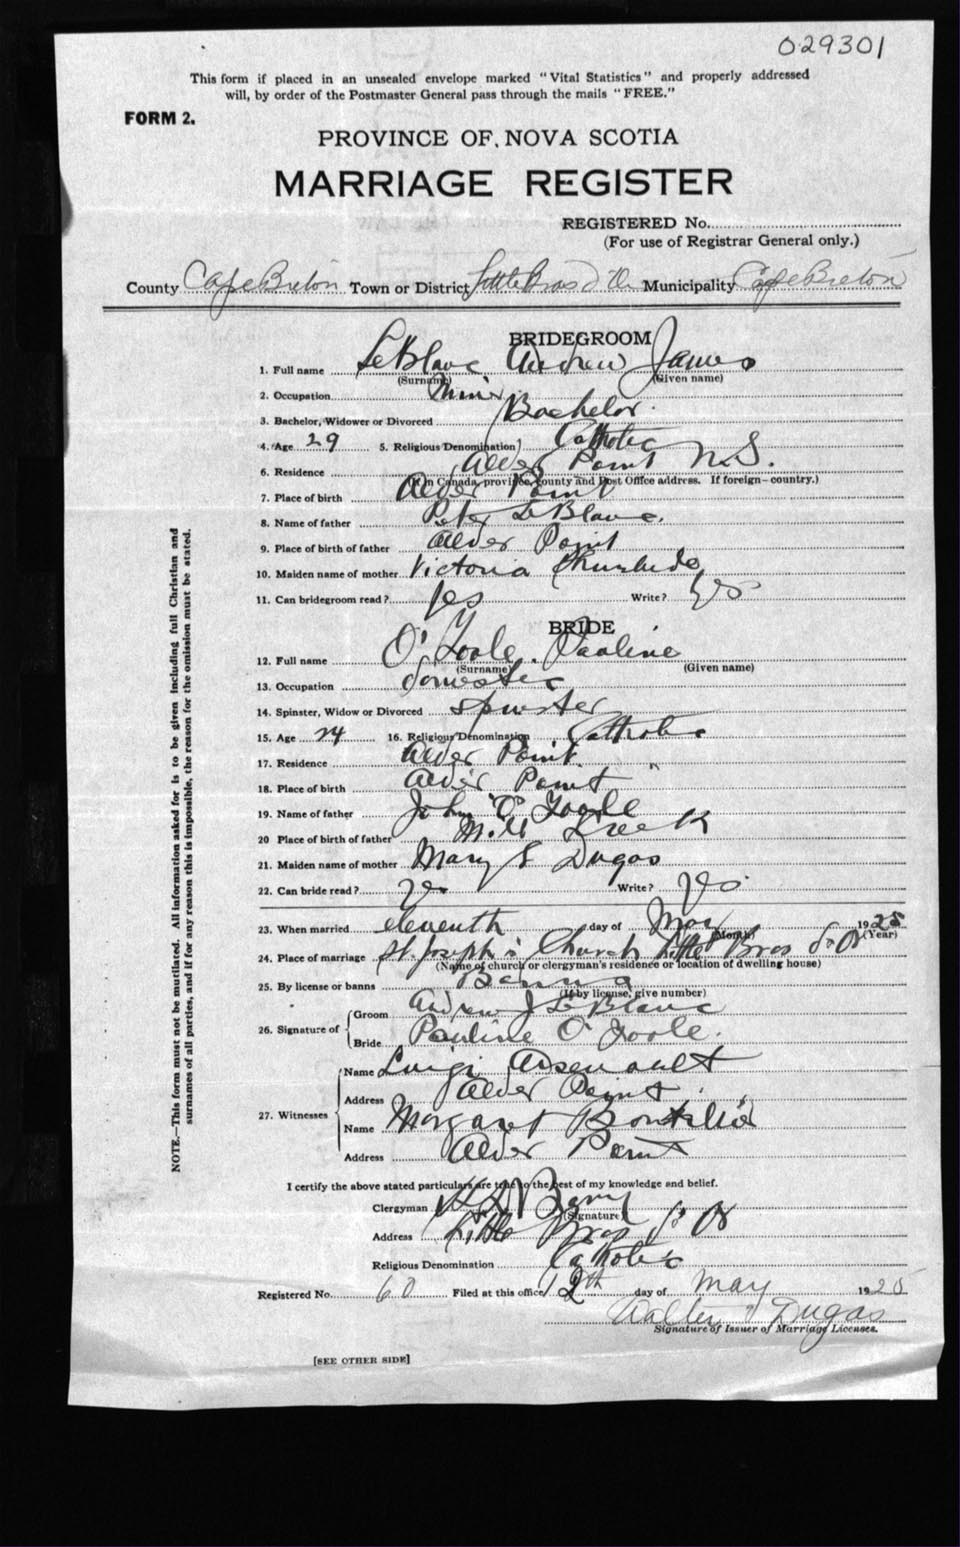 029301
This form if placed in an unsealed envelope marked "Vital Statistics" and properly addressed
will, by order of the Postmaster General pass through the mails "FREE."
FORM 2.
PROVINCE OF NOVA SCOTIA
MARRIAGE REGISTER
REGISTERED No.
(For use of Registrar General only.)
County Cape Breton Town or District Little Bras d'Or Municipality Cape Breton
BRIDEGROOM
1. Full name LeBlanc Andrew James
(Surname) (Given name)
2. Occupation Miner
3. Bachelor, Widower or Divorced Bachelor
4. Age 29 5. Religious Denomination Catholic
6. Residence Alder Point N.S.
(If in Canada, province, county and Post Office address. If foreign—country.)
7. Place of birth Alder Point
8. Name of father Peter LeBlanc
9. Place of birth of father Alder Point
10. Maiden name of mother Victoria
11. Can bridegroom read? Yes Write? Yes
BRIDE
12. Full name O'Toole Pauline
(Surname) (Given name)
13. Occupation domestic
14. Spinster, Widow or Divorced Spinster
15. Age 24 16. Religious Denomination Catholic
17. Residence Alder Point
18. Place of birth Alder Point
19. Name of father John O'Toole
20 Place of birth of father Mill Creek
21. Maiden name of mother Mary Dugas
22. Can bride read? Yes Write? Yes
23. When married eleventh day of May 1925
(Month) (Year)
24. Place of marriage St. Joseph's Church Little Bras d'Or
(Name of church or clergyman's residence or location of dwelling house)
25. By license or banns Banns
(If by license, give number)
26. Signature of Groom Andrew J LeBlanc
Bride Pauline O'Toole
27. Witnesses Name Luigi Arsenault
Address Alder Point
Name Margaret
Address Alder Point
I certify the above stated particulars are true to the best of my knowledge and belief.
Clergyman
(Signature)
Address Little Bras d'Or
Religious Denomination Catholic
Registered No. 60 Filed at this office 12th day of May 1925
Walter Dugas
Signature of Issuer of Marriage Licenses.
[SEE OTHER SIDE]
NOTE.—This form must not be mutilated. All information asked for is to be given including full Christian and
surnames of all parties, and if for any reason this is impossible, the reason for the omission must be stated.